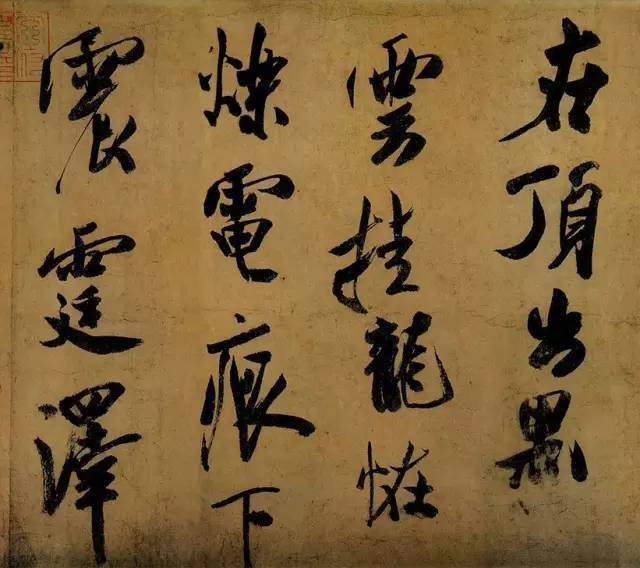 在頂出黑
雲挂龍怪
爍電痕下
震霆澤